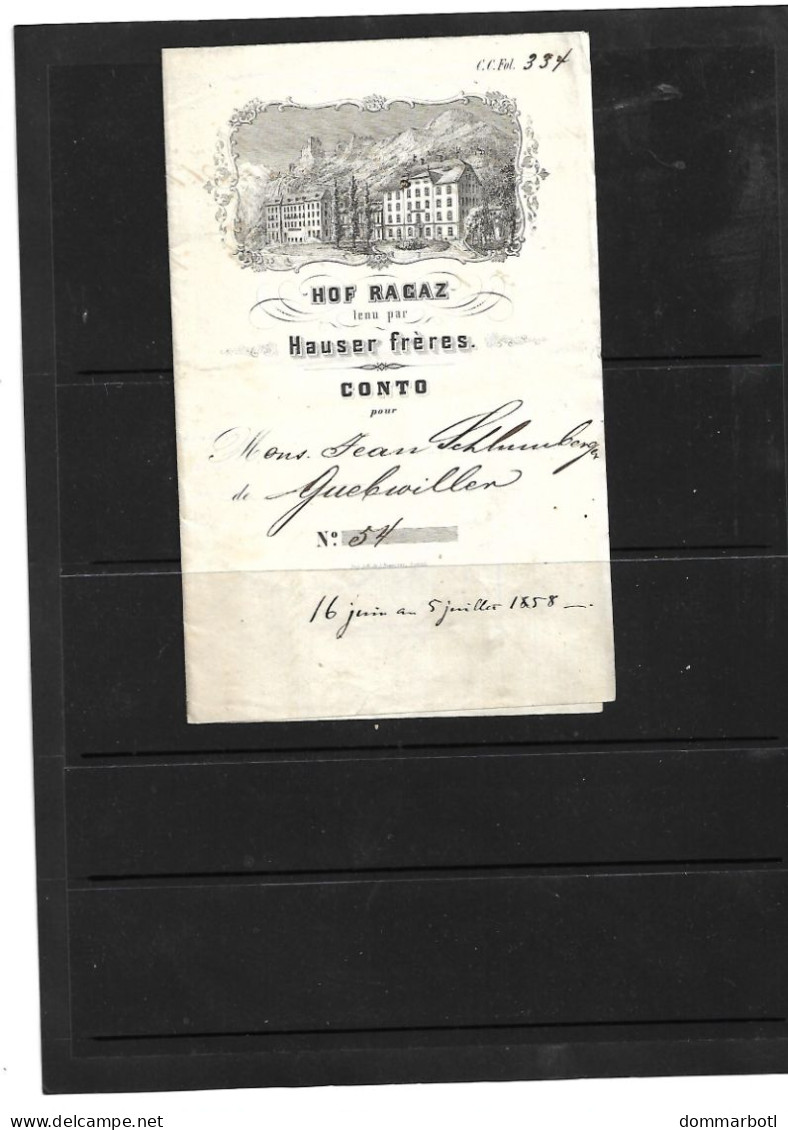 C.C.Fol. 334
HOF RAGAZ
tenu par
Hauser frères.
CONTO
pour
Mons. Jean Schlumberger
de Guebwiller
No. 54
16 juin au 5 juillet 1858 —.
delcampe.net
dommarbotl